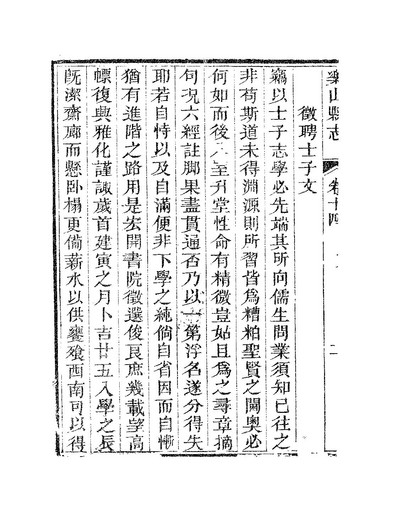 縣志 卷十四
徵聘士子文
竊以士子志學必先端其所向儒生問業須知已往之
非苟斯道未得淵源則所習皆爲糟粕聖賢之閫奧必
何如而後入室升堂性命有精微豈姑且爲之尋章摘
句况六經註脚果盡貫通否乃以一第浮名遂分得失
耶若自恃以及自滿便非下學之純倘自省因而自慚
猶有進階之路用是宏開書院徵選俊良庶幾載孚高
標復興雅化謹諏歲首建寅之月卜吉廿五入學之辰
既潔齋廊而懸卧榻更備薪水以供饔飧西南可以得